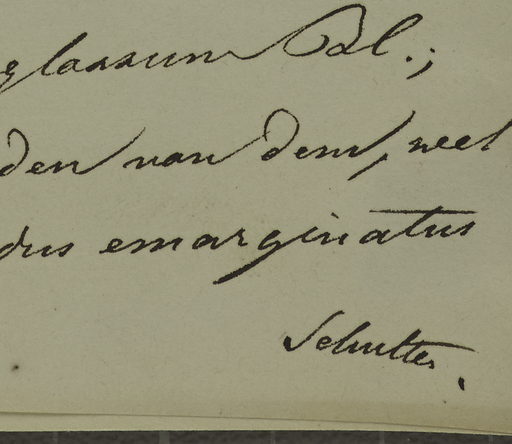 glassum Bl.;
den van dem, weel
dus emarginatus
Schutter.